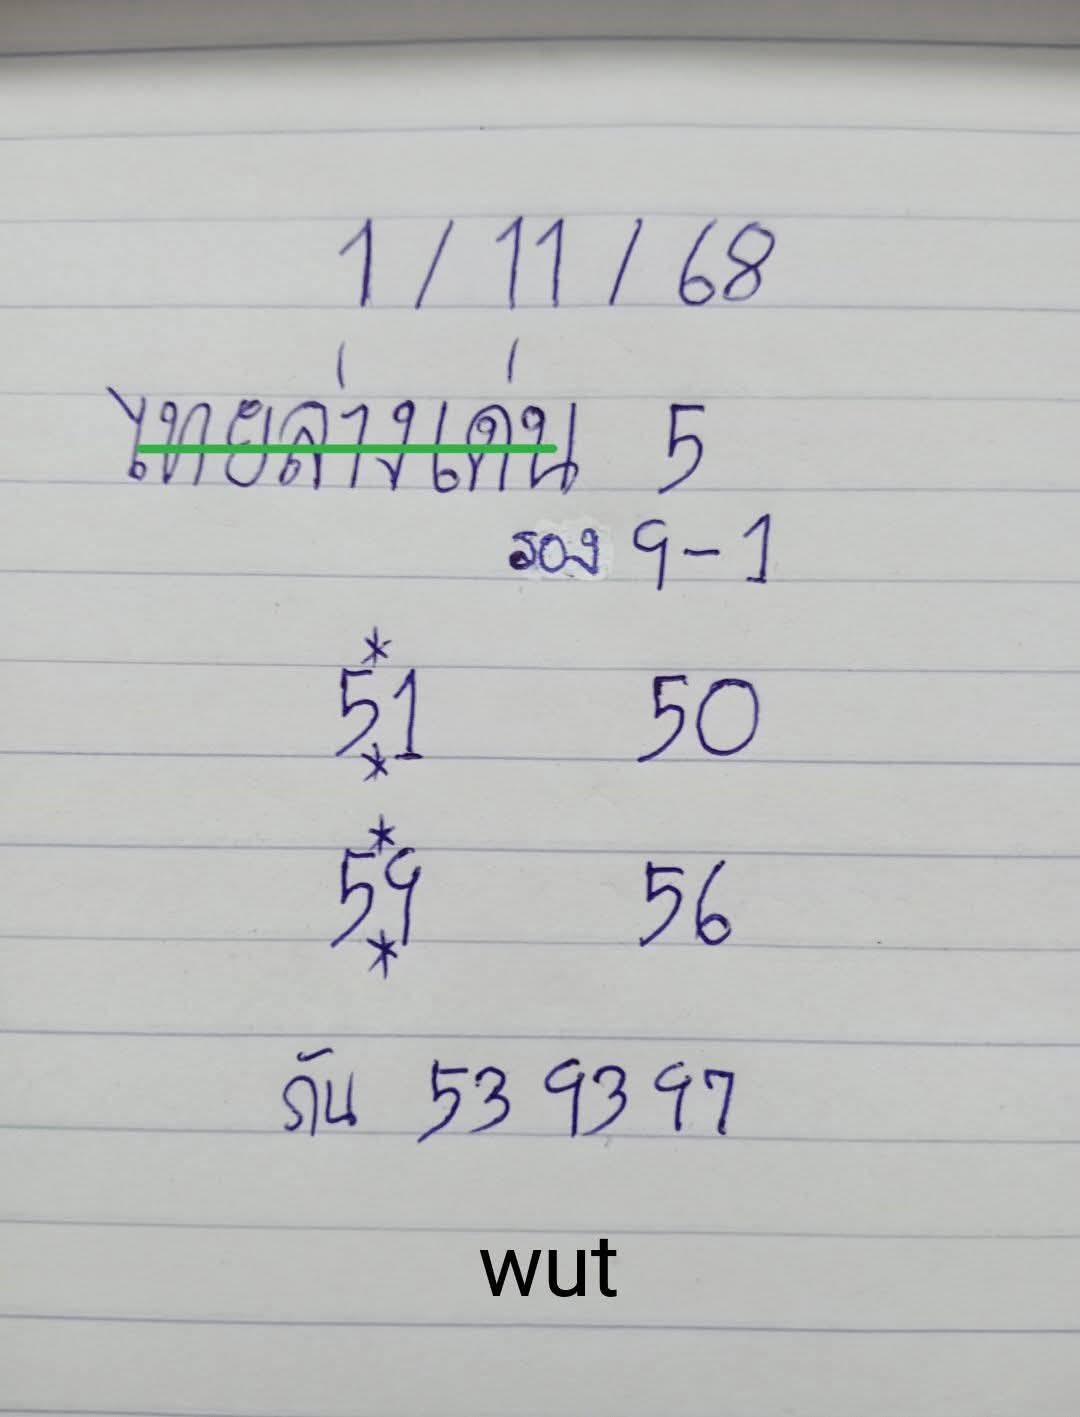 1 / 11 / 68
ไทยล่างเด่น 5
รอง 9-1
* *
51 50
* *
59 56
กัน 53 93 97
wut